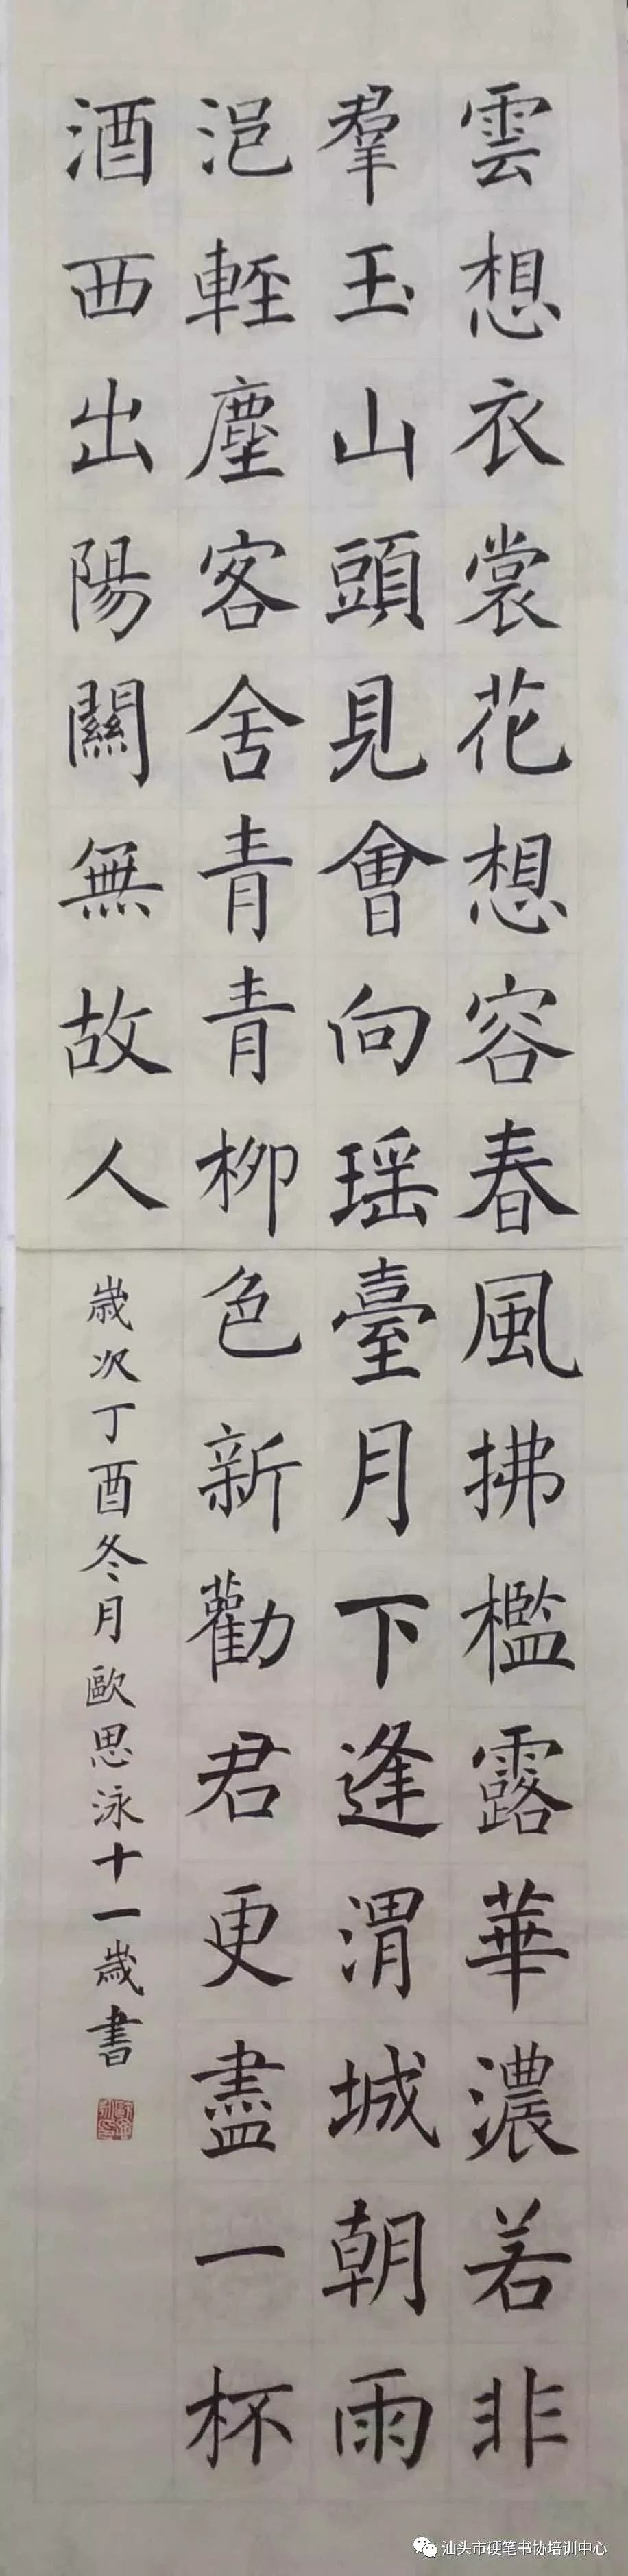 雲想衣裳花想容春風拂檻露華濃若非
羣玉山頭見會向瑶臺月下逢渭城朝雨
浥輕塵客舍青青柳色新勸君更盡一杯
酒西出陽關無故人
歲次丁酉冬月歐思泳十一歲書
汕头市硬笔书协培训中心